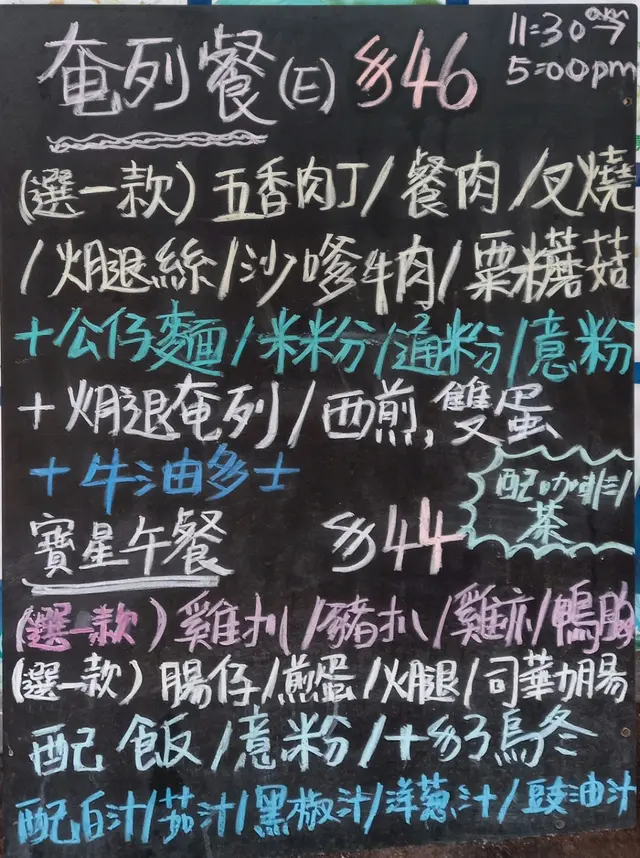 奄列餐(E) $46
11:30am→
5:00pm
(選一款) 五香肉丁/餐肉/叉燒
/火腿絲/沙嗲牛肉/粟米蘑菇
+公仔麵/米粉/通粉/意粉
+火腿奄列/西煎雙蛋
+牛油多士
配咖啡/
茶
寶星午餐 $44
(選一款)雞扒/豬扒/雞亦/鴨胸
(選一款)腸仔/煎蛋/火腿/司華力腸
配 飯/意粉/+$3烏冬
配白汁/茄汁/黑椒汁/洋葱汁/豉油汁